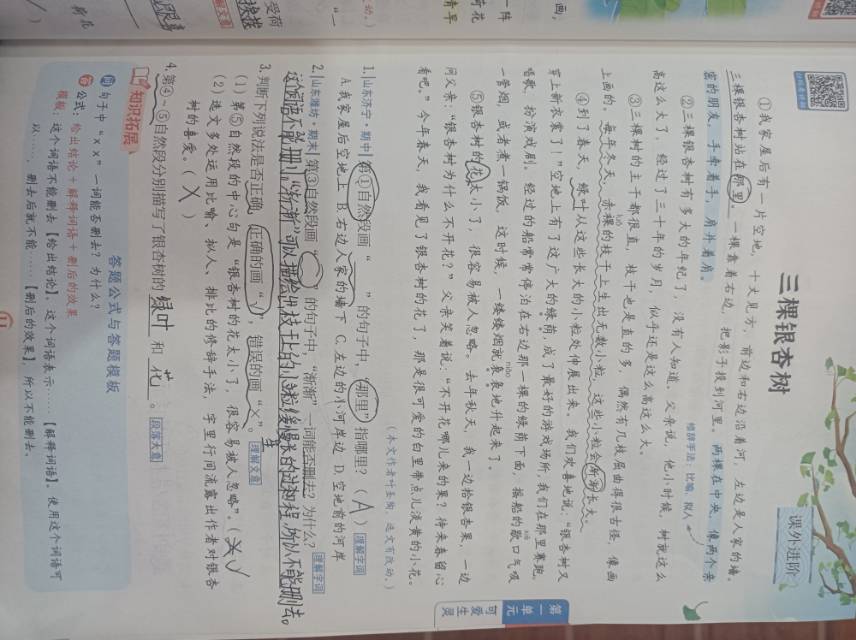 课外进阶
三棵银杏树
①我家屋后有一片空地，十丈见方，前边和右边沿着河，左边是人家的墙。
三棵银杏树站在那里。一棵靠着右边，把影子投到河里。两棵在中央，像两个亲
密的朋友，手牵着手，肩并着肩。
修辞手法：比喻、拟人
②三棵银杏树有多大的年纪了，没有人知道。父亲说，他小时候，树就这么
高这么大了，经过了三十年的岁月，似乎还是这么高这么大。
③三棵树的主干都很直，枝干也是直的多，偶然有几枝屈曲得很古怪，像画
上画的。每年冬天，赤裸的枝干上生出无数小粒。这些小粒会渐渐长大。
④到了春天，绿叶从这些长大的小粒处伸展出来。我们欢喜地说：“银杏树又
穿上新衣裳了！”空地上有了这广大的绿荫，成了最好的游戏场所，我们在那里赛跑、
唱歌、扮演戏剧。经过的船常常停泊在右边那一棵的绿荫下面，摇船的歇口气吸
一管烟，或者煮一锅饭。这时候，一缕缕烟就袅袅地升起来了。
⑤银杏树的花太小了，很容易被人忽略。去年秋天，我一边拾银杏果，一边
问父亲：“银杏树为什么不开花？”父亲笑着说：“不开花哪儿来的果？待来春留心
看吧。”今年春天，我看见了银杏树的花了，那是很可爱的白里带点儿淡黄的小花。
（本文作者叶圣陶，选文有改动。）
1.|山东济宁·期中|第①自然段画“ ”的句子中，“那里”指哪里？（ A ）理解字词
A.我家屋后空地上 B.右边人家的墙下 C.左边的小河岸边 D.空地前的河岸
2.|山东潍坊·期末|第③自然段画“ ”的句子中，“渐渐”一词能否删去？为什么？理解字词
这个词语不能删，“渐渐”可以描绘出枝干上的小粒缓慢长的过程，所以不能删去。
3.判断下列说法是否正确，正确的画“√”，错误的画“×”。理解文意
（1）第⑤自然段的中心句是“银杏树的花太小了，很容易被人忽略”。（ √ ）
（2）选文多处运用比喻、拟人、排比的修辞手法，字里行间流露出作者对银杏
树的喜爱。（ × ）
4.第④~⑤自然段分别描写了银杏树的 绿叶 和 花 。段落大意
知识拓展
答题公式与答题模板
句子中“××”一词能否删去？为什么？
公式：给出结论+解释词语+删后的效果
模板：这个词语不能删去【给出结论】。这个词语表示……【解释词语】，使用这个词语可
以……，删去后就不能……【删后的效果】，所以不能删去。
第一单元
可爱生灵
11